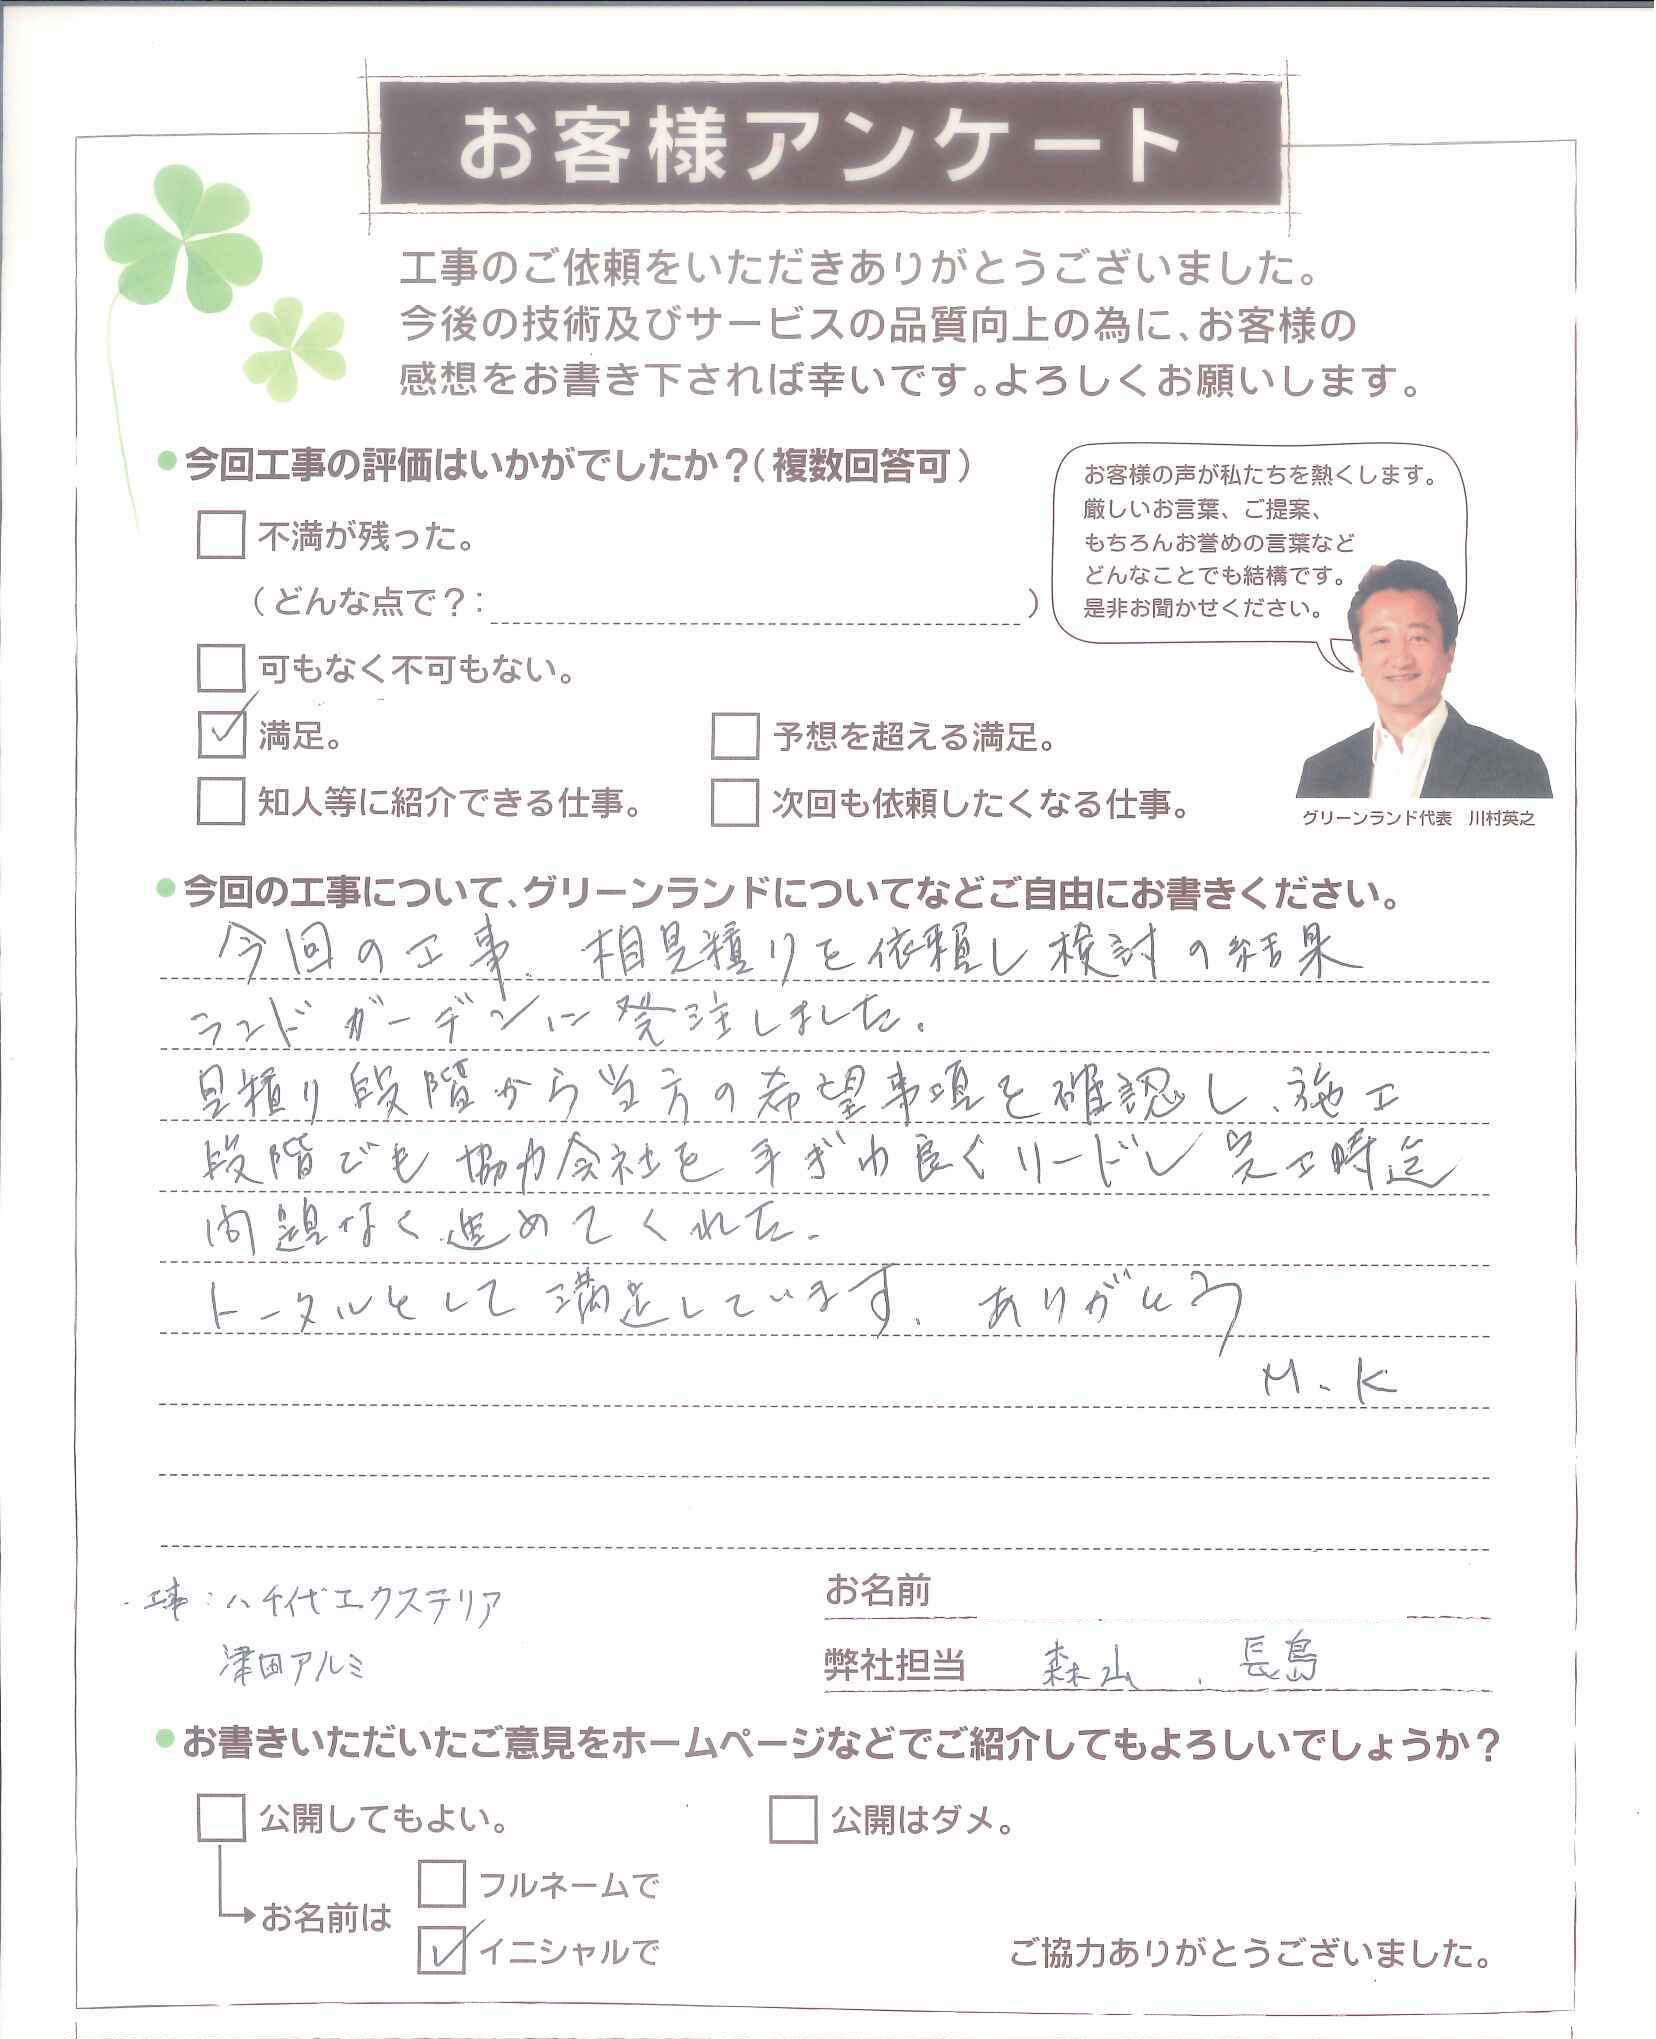 お客様アンケート
工事のご依頼をいただきありがとうございました。
今後の技術及びサービスの品質向上の為に、お客様の
感想をお書き下されば幸いです。よろしくお願いします。
今回工事の評価はいかがでしたか？(複数回答可)
不満が残った。
(どんな点で？: )
可もなく不可もない。
満足。
予想を超える満足。
知人等に紹介できる仕事。
次回も依頼したくなる仕事。
お客様の声が私たちを熱くします。
厳しいお言葉、ご提案、
もちろんお誉めの言葉など
どんなことでも結構です。
是非お聞かせください。
グリーンランド代表 川村英之
今回の工事について、グリーンランドについてなどご自由にお書きください。
今回の工事、相見積りを依頼し検討の結果
ランドガーデンに発注しました。
見積り段階から当方の希望事項を確認し、施工
段階でも協力会社を手ぎわ良くリードし完工時迄
問題なく進めてくれた。
トータルとして満足しています。ありがとう
M.K
工事:八千代エクステリア
津田アルミ
お名前
弊社担当 森山、長島
お書きいただいたご意見をホームページなどでご紹介してもよろしいでしょうか？
公開してもよい。
公開はダメ。
お名前は
フルネームで
イニシャルで
ご協力ありがとうございました。